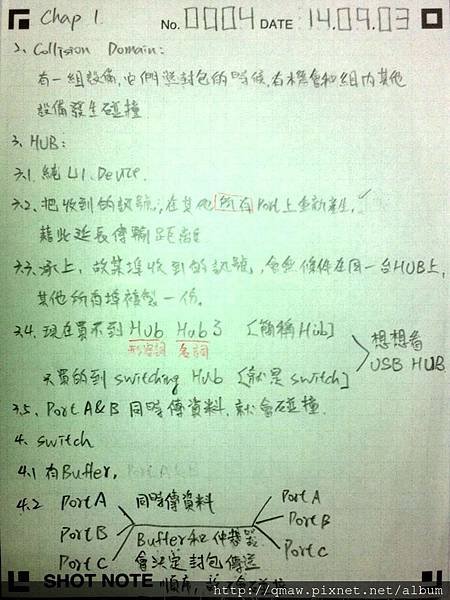 Chap 1. No. 0004 DATE 14.09.03
2. Collision Domain:
有一組設備,它們送封包的時候,有機會和組內其他
設備發生碰撞
3. HUB:
3.1. 純 L1 Device.
3.2. 把收到的訊號,在其他所有Port上重新產生,
藉此延長傳輸距離
3.3. 承上,故某埠收到的訊號,會無條件在同一台HUB上,
其他所有埠複製一份.
3.4. 現在買不到 Hub Hub了 [簡稱Hub]
形容詞 名詞
只買的到 switching Hub [就是 switch]
想想看
USB HUB
3.5. Port A&B 同時傳資料,就會碰撞.
4. switch
4.1 有Buffer, Port A&B
4.2 Port A 同時傳資料 Port A
Port B Buffer和仲裁器 Port B
Port C 會決定封包傳送 Port C
順序,
SHOT NOTE
http://qmaw.pixnet.net/album